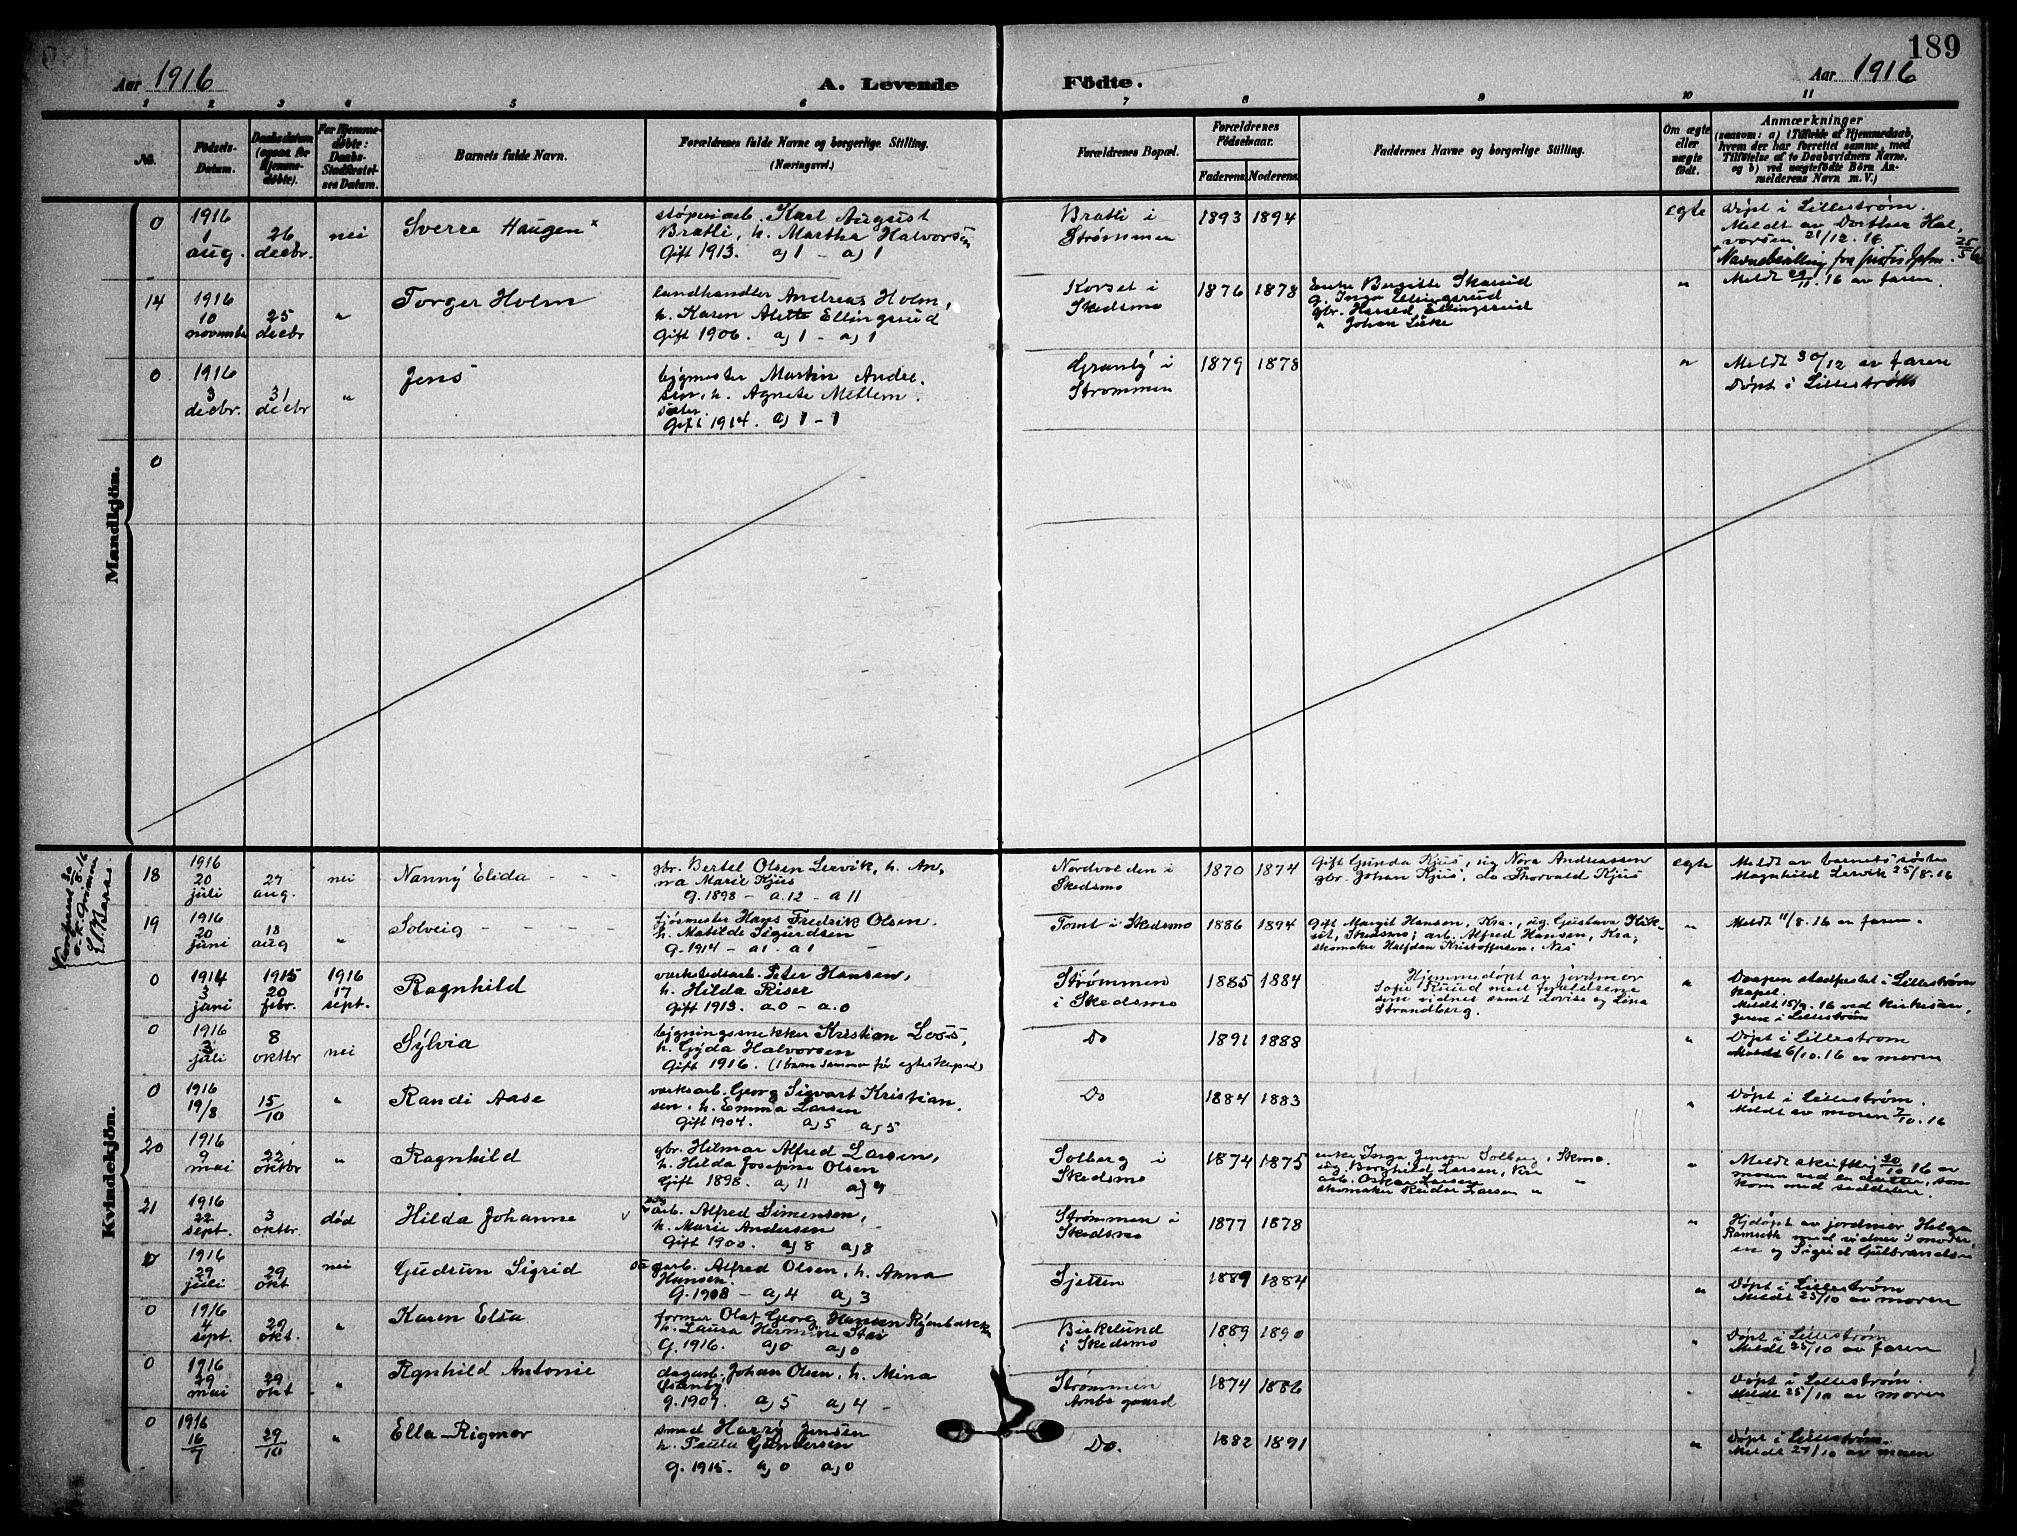 189
Aar 1916
A. Levende
Födte.
Aar 1916
1 2 3 4 5 6 7 8 9 10 11
No.
Födsels-
Datum.
Daabsdatum
(ogsaa for
Hjemme-
döbte).
For Hjemme-
döbte:
Daabs-
Stadfæstel-
ses Datum.
Barnets fulde Navn.
Forældrenes fulde Navne og borgerlige Stilling.
(Næringsvei.)
Forældrenes Bopæl.
Forældrenes
Födselsaar.
Faderens. Moderens.
Faddernes Navne og borgerlige Stilling.
Om ægte
eller
uægte
födt.
Anmærkninger
(saasom: a) i Tilfælde af Hjemmedaab,
hvem der har forrettet samme, med
Tilföielse af to Daabsvidners Navne,
og b) ved uægtefödte Börn An-
melderens Navn m. V.)
Mandkjön.
0
1916
1
aug.
26
decbr.
nei
Sverre Haugen x
støperiarb. Karl August
Bratli, h. Martha Halvorsen
Gift 1913. a) 1 - a) 1
Bratli i
Strømmen
1893 1894
egte
Døpt i Lillestrøm.
Meldt av Dorthea Hal,
vorsen 21/12. 16
14
1916
10
novembr
25
decbr
"
Torger Holm
landhandler Andreas Holm,
h. Karen Alette Ellingsrud
Gift 1906. a) 1 - a) 1
Korset i
Skedsmo
1876 1878
Enke Bergitte Skarud
g. Inga Ellingsrud
gbr. Harald Ellingsrud
" Johan
"
Meldt 29/11. 16 av faren.
0
1916
3
decbr.
31
decbr
"
Jens
bygmester Martin Andre,
sen, h. Agnete Mellem,
sæter.
Gift 1914. a) 1 - 1
Granby i
Strømmen
1879 1878
"
Meldt 30/12 av faren
Døpt i Lillestrøm
0
Kvindekjön.
18
1916
20
juli
27
aug.
nei
Nanny Elida - - -
gbr. Bertel Olsen Lervik, h. An,
na Marie Kjus
g. 1898 - a. 12 - a 11
Nordvolden i
Skedsmo
1870 1874
Gift Gunda Kjus, ug Nora Andreassen
gbr. Johan Kjus, Do Thorvald Kjus
egte
Meldt av barnets søster
Magnhild Lervik 25/8. 16
19
1916
20
juni
18
aug
"
Solveig - - - - -
fjøsmester Hans Fredrik Olsen.
h. Matilde Sigurdsen
g. 1914 - a 1 - a 1 -
Tomt i Skedsmo
1886 1894
Gift Margit Hansen, Kra., ug. Gustava
Skedsmo; arb. Alfred Hansen, Kra,
skomaker Halfdan Kristoffersen, Nes
"
Meldt 11/8. 16 av faren.
0
1914
3
juni
1915
20
febr.
1916
17
sept.
Ragnhild
værkstedsarb. Peter Hansen,
h. Hilda Riser
Gift 1913. a. 0 - a. 0
Strømmen
i Skedsmo
1885 1884
Hjemmedøpt av jordmor
Sofie Ruud med forældrene
som vidner samt Lovise og Lina
Strandberg.
"
Daapen stadfestet i Lillestrøm
kapel.
Meldt 15/9. 16 ved kirkesan,
geren i Lillestrøm
0
1916
3
juli
8
oktbr
nei
Sylvia
bygningssnekker Kristian Loos,
h. Gyda Halvorsen
Gift 1916. (1 barn sammen før egteskapet)
Do
1891 1888
"
Døpt i Lillestrøm
Meldt 6/10. 16 av moren
0
1916
19/8
15/10
"
Randi Aase
værksarb. Georg Sigvart Kristian,
sen, h. Emma Larsen
Gift 1904. a) 5 a) 5
Do
1884 1883
"
Døpt i Lillestrøm.
Meldt av moren 7/10. 16
20
1916
9
mai
22
oktbr
"
Ragnhild
gbr. Hilmar Alfred Larsen,
h. Hilda Josefine Olsen
Gift 1898. a) 11 a) 9
Solberg i
Skedsmo
1874 1875
enke Inga Jensen Solberg, Skmo.
ug. Borghild Larsen, Kra
arb. Oskar Larsen "
skomaker Reidar Larsen "
"
Meldt skriftlig 20/10 16 av
moren ved en datter, som
kom med seddelen.
21
1916
22
sept.
3
oktbr.
død
Hilda Johanne
arb. Alfred Simensen,
h. Marie Andersen
Gift 1900. a) 8 a) 8
Strømmen i
Skedsmo
1877 1878
"
Hjdøpt av jordmor Helga
Ramseth med vidner: moder,
en og Sigrid Gulbrandsen
0
1916
29
juli
29
okt
nei
Gudrun Sigrid
dagarb. Alfred Olsen, h. Anna
Hansen.
G. 1908 - a) 4 a) 3
Sjetten
1889 1884
"
Døpt i Lillestrøm
Meldt 25/10 av moren
0
1916
4
sept.
29
okt.
"
Karen Elsa
former Olaf Georg Hansen
h. Laura Hermine
G. 1916. a) 0 a) 0
Birkelund
i Skedsmo
1889 1890
"
Døpt i Lillestrøm
Meldt 25/10 av faren
0
1916
29
mai
29
okt
"
Rgnhild Antonie
dagarb. Johan Olsen, h. Mina
Østenby
g. 1907. a) 5 a) 4 -
Strømmen
gaard
1874 1886
Døpt i Lillestrøm.
Meldt 25/10 av moren
0
1916
16/7
29/10
"
Ella Rigmor
smed Harry Jensen
h. Paula Gundersen
g. 1915. a) 0 a) 0
Do.
1882 1891
"
Døpt i Lillestrøm.
Meldt 27/10 av moren